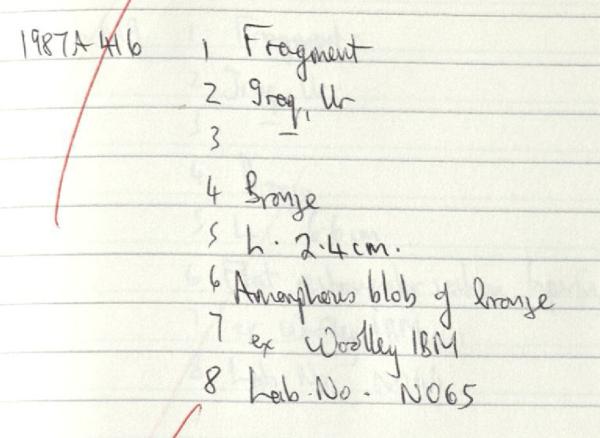 1987A416 1 Fragment
2 Iraq, Ur
3 –
4 Bronze
5 L. 2.4cm.
6 Amorphous blob of bronze
7 ex Woolley IBM
8 Lab. No. N065